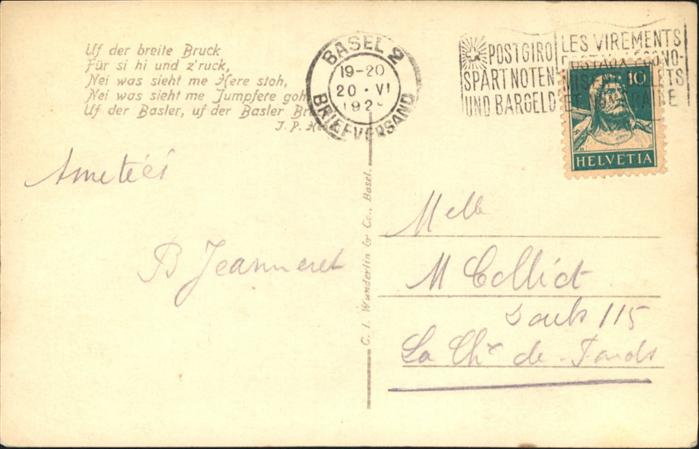 Uf der breite Bruck
Für si hi und z'ruck,
Nei was sieht me Here stoh,
Nei was sieht me Jumpfere goh
Uf der Basler, uf der Basler
J. P.
BASEL 2
19-20
20 · VI
192
BRIEFVERSAND
POSTGIRO
SPART NOTEN
UND BARGELD
LES VIREMENTS
10
HELVETIA
Amitiés
B Jeanneret
C. I. Wunderlin & Co., Basel.
Melle
M Colliot
Doubs 115
La Chx de-Fonds